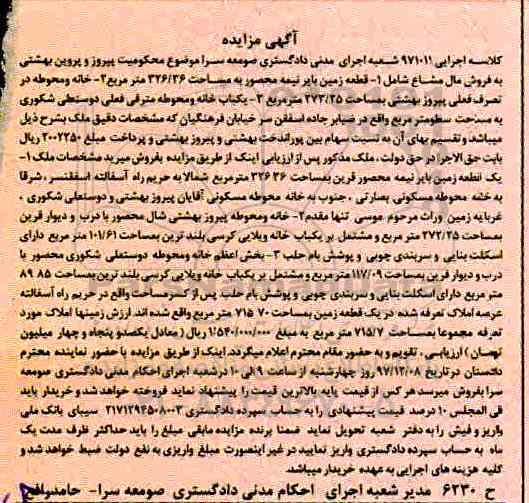 آگهی مزایده
کلاسه اجرایی ۹۷۱۰۱۱ شعبه اجرای مدنی دادگستری صومعه سرا موضوع محکومیت پیروز و پروین بهشتی
به فروش مال مشاع شامل ۱- قطعه زمین بایر نیمه محصور به مساحت ۳۲۶/۳۶ متر مربع ۲- خانه ومحوطه در
تصرف فعلی پیروز بهشتی بمساحت ۲۷۲/۲۵ مترمربع ۳- یکباب خانه ومحوطه مترقی فعلی دوستعلی شکوری
به مساحت سطومتر مربع واقع در ضیابر جاده اسفقن سر خیابان فرهنگیان که مشخصات دقیق ملک بشرح ذیل
میباشد و تقسیم بهای آن به نسبت سهام بین پوراندخت بهشتی و پیروز بهشتی و پرداخت مبلغ ۲۰۰۲۲۵۰ ریال
بابت حق الاجرا در حق دولت ، ملک مذکور پس از ارزیابی اینک از طریق مزایده بفروش میرسد مشخصات ملک ۱-
یک قطعه زمین بایر نیمه محصور قرین بمساحت ۳۲۶/۳۶ مترمربع شمالا به حریم راه آسفالته اسفقنسر ، شرقا
به خانه محوطه مسکونی بصارتی ، جنوب به خانه محوطه مسکونی آقایان پیروز بهشتی و دوستعلی شکوری ،
غربا به زمین وراث مرحوم موسی تنها مقدم ۲- خانه ومحوطه پیروز بهشتی شال محصور با درب و دیوار قرین
بمساحت ۲۷۲/۲۵ متر مربع و مشتمل بر یکباب خانه ویلایی کرسی بلند ترین بمساحت ۱۰۱/۶۱ متر مربع دارای
اسکلت بنایی و سربندی چوبی و پوشش بام حلب ۳- بخش اعظم خانه ومحوطه دوستعلی شکوری محصور با
درب و دیوار قرین بمساحت ۱۱۷/۰۹ متر مربع و مشتمل بر یکباب خانه ویلایی کرسی بلند ترین بمساحت ۸۵ ۸۹
متر مربع دارای اسکلت بنایی و سربندی چوبی و پوشش بام حلب پس از کسر مساحت واقع در حریم راه آسفالته
عرصه املاک تعرفه شده در یک قطعه زمین بمساحت ۷۰ ۷۱۵ متر مربع واقع شده اند. ارزش زمینها املاک مورد
تعرفه مجموعا بمساحت ۷۱۵/۷ متر مربع به مبلغ ۱/۵۴۰/۰۰۰/۰۰۰ ریال ( معادل یکصدو پنجاه و چهار میلیون
تومان ) ارزیابی ، تقویم و به حضور مقام محترم اعلام میگردد. اینک از طریق مزایده با حضور نماینده محترم
دادستان در تاریخ ۹۷/۱۲/۰۸ روز چهارشنبه از ساعت ۹ الی ۱۰ درشعبه اجرای احکام مدنی دادگستری صومعه
سرا بفروش میرسد هر کس از قیمت پایه بالاترین قیمت را پیشنهاد نماید فروخته خواهد شد و خریدار باید
فی المجلس ۱۰ درصد قیمت پیشنهادی را به حساب سپرده دادگستری ۲۱۷۱۲۹۴۵۰۸۰۰۳ سیبای بانک ملی
واریز و فیش را به دفتر شعبه تحویل نماید ضمنا برنده مزایده مابقی مبلغ را باید حداکثر ظرف مدت یک
ماه به حساب سپرده دادگستری واریز نمایید در غیر اینصورت مبلغ واریزی به نفع دولت ضبط خواهد شد و
کلیه هزینه های اجرایی به عهده خریدار میباشد.
ح ۶۲۳۰ مدیر شعبه اجرای احکام مدنی دادگستری صومعه سرا- حامد